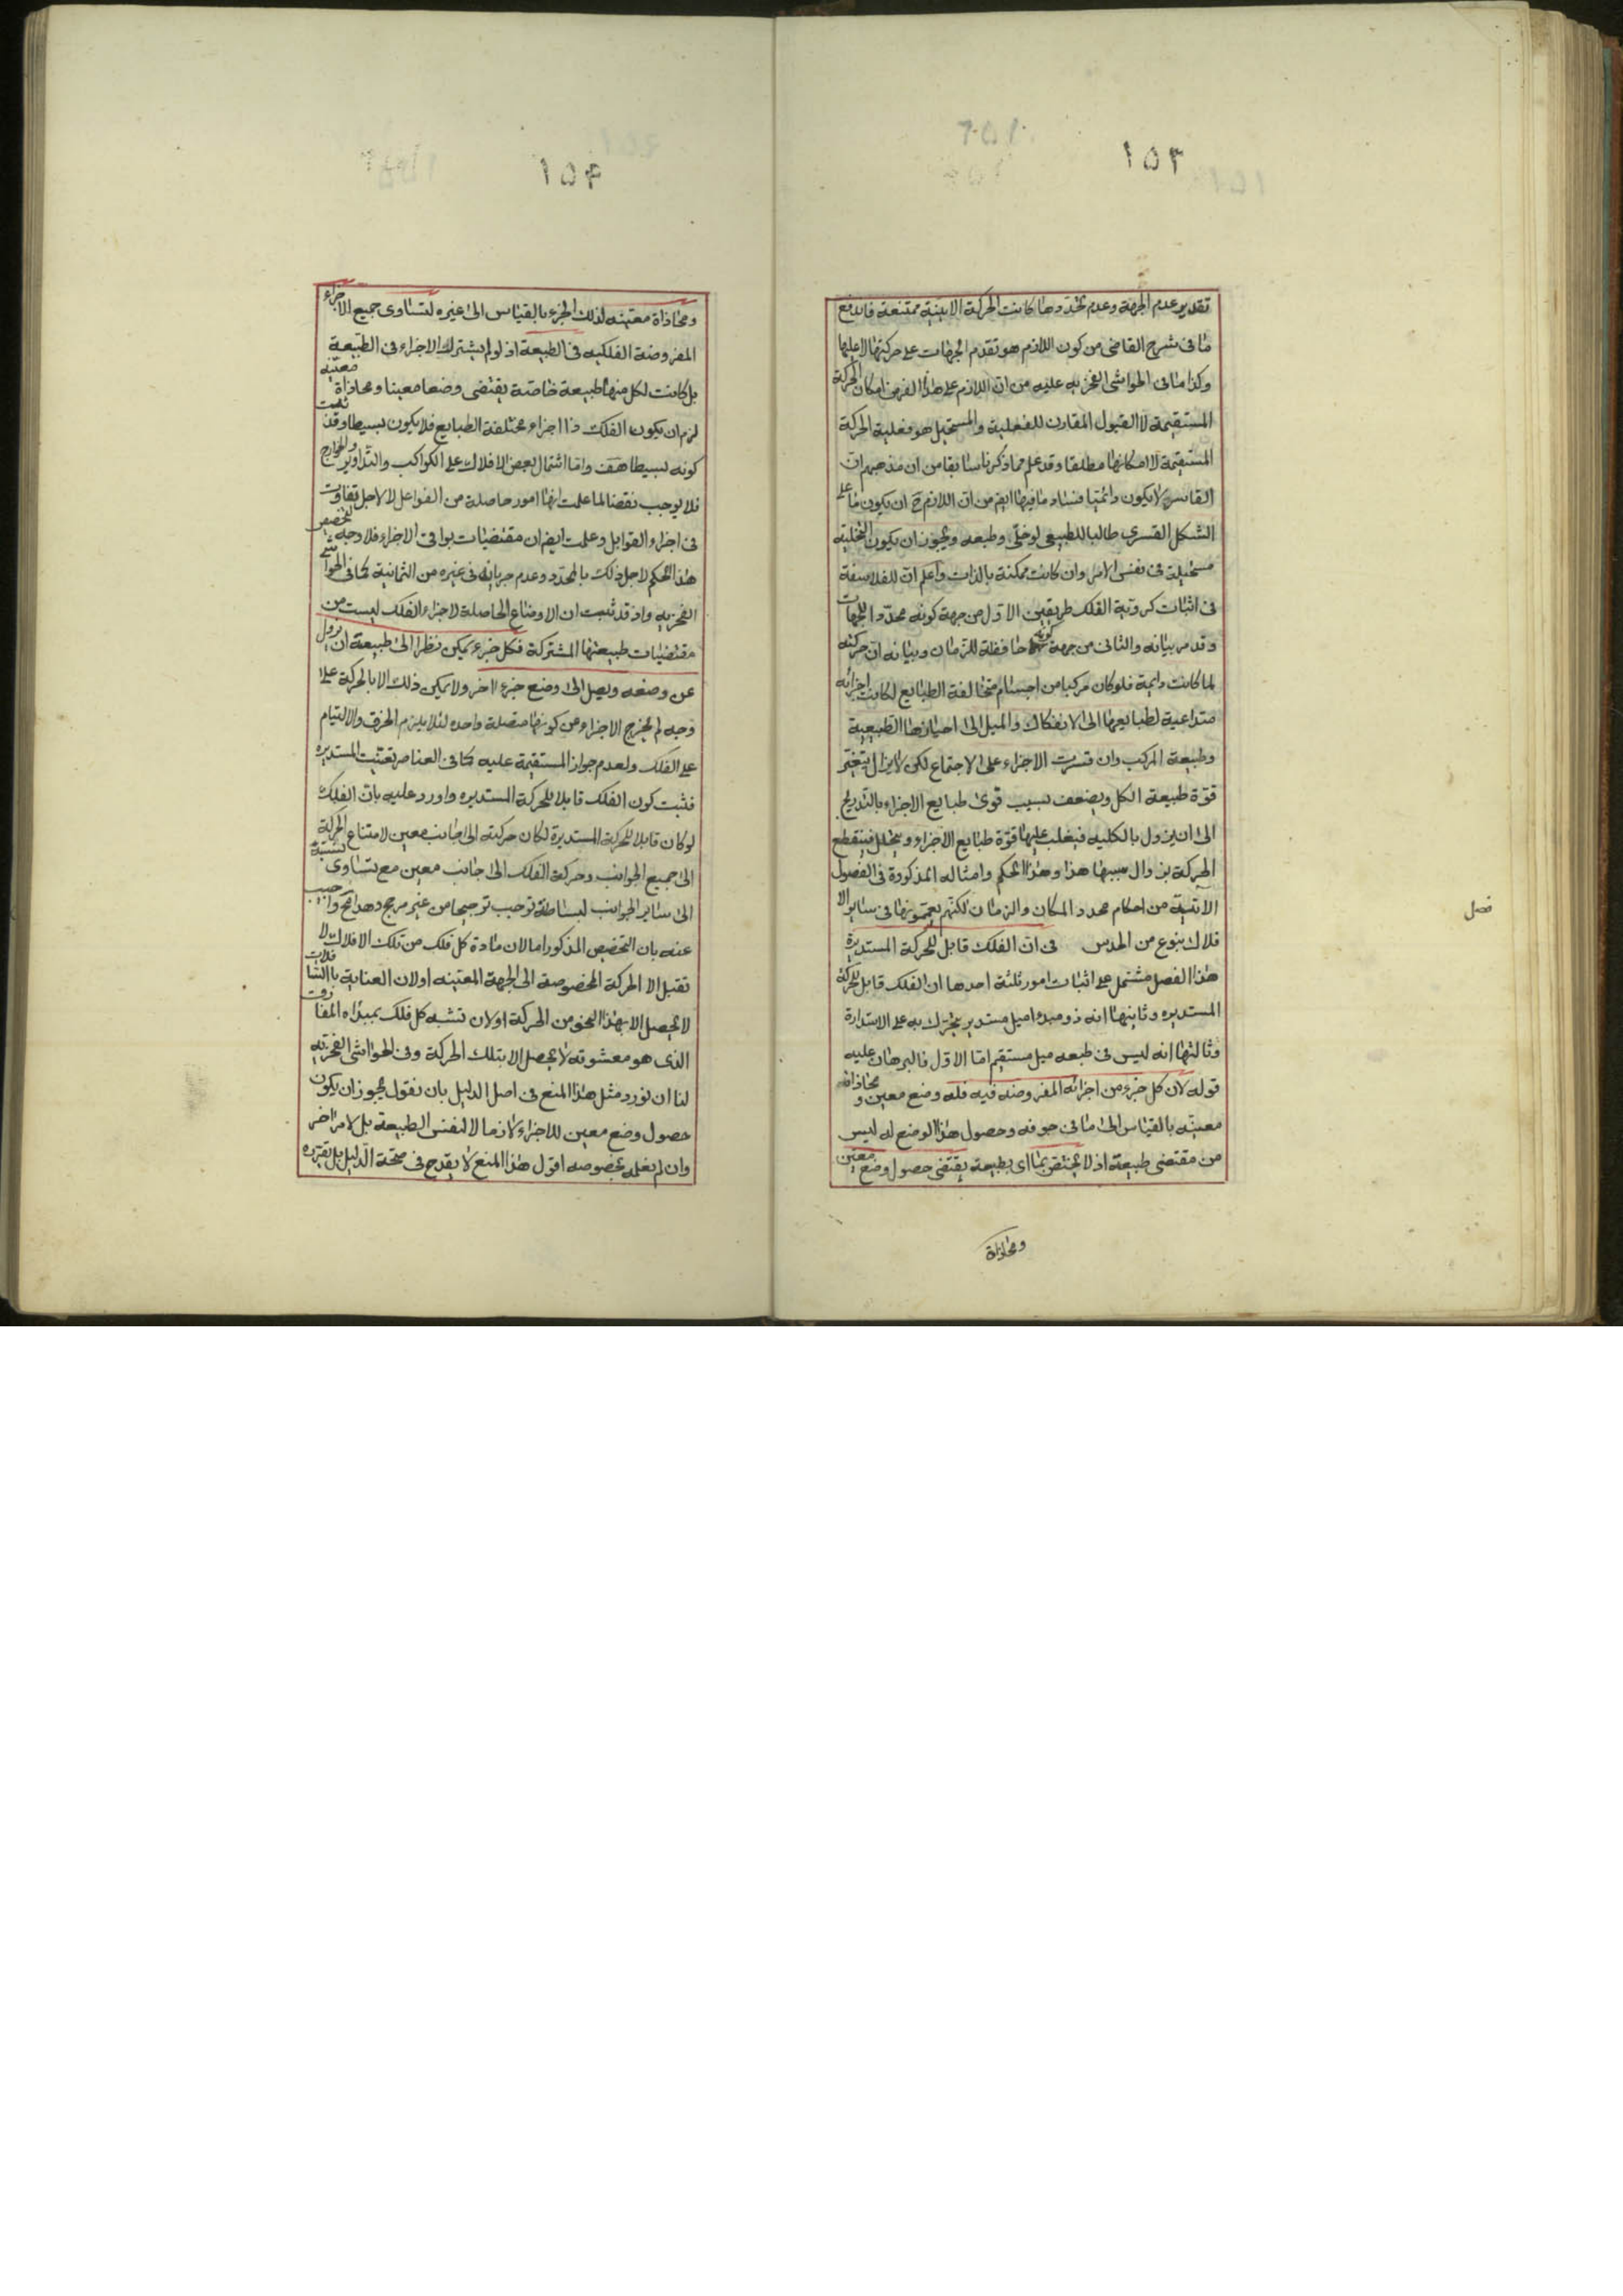 ١٥٣
تقدير عدم الجهة وعدم تحددها كانت الحركة الاينية ممتنعة فاندفع
ما فى شرح القاضى من كون اللازم هو تقدم الجهات على حركتها لا عليها
وكذا ما فى الحواشى الفخريه عليه من ان اللازم على هذا الفرض امكان الحركة
المستقيمة لا القبول المقارن للفعلية والمستحيل هو فعلية الحركة
المستقيمة لا امكانها مطلقا وقد علم مما ذكرناه سابقا من ان مذهبهم ان
القاسر لا يكون دائميا فساد ما فيها ايضا من ان اللازم ح ان يكون ما على
الشكل القسرى طالبا للطبيعى لو خلى وطبعه ويجوز ان يكون التخلية
مستحيلة فى نفس الامر وان كانت ممكنة بالذات واعلم ان للفلاسفة
فى اثبات كروية الفلك طريقين الاول من جهة كونه محدد الجهات
وقد مر بيانه والثانى من جهة كونها حافظة للزمان وبيانه ان حركته
لما كانت دايمة فلو كان مركبا من اجسام متخالفة الطبايع لكانت اجزائه
متداعية لطبايعها الى الانفكاك والميل الى احيازها الطبيعية
وطبيعة المركب وان قسرت الاجزاء على الاجتماع لكن لا يزال يتغير
قوة طبيعة الكل ويضعف بسبب قوى طبايع الاجزاء بالتدريج
الى ان يزول بالكليه فيغلب عليها قوة طبايع الاجزاء ويتحلل فينقطع
الحركة بزوال سببها هذا وهذا الحكم وامثاله المذكورة فى الفصول
الاتية من احكام محدد المكان والزمان لكنهم يعممونها فى ساير الا
فلاك بنوع من الحدس فى ان الفلك قابل للحركة المستديرة
فصل
هذا الفصل مشتمل على اثبات امور ثلثة احدها ان الفلك قابل للحركة
المستديره وثانيها انه ذو مبدء ميل مستدير يتحرك به على الاستدارة
وثالثها انه ليس فى طبعه ميل مستقيم اما الاول فالبرهان عليه
قوله لان كل جزء من اجزائه المفروضه فيه فله وضع معين ومحاذاة
معينه بالقياس الى ما فى جوفه وحصول هذا الوضع له ليس
من مقتضى طبيعة اذ لا يختص بما اى بطبيعة يقتضى حصول وضع معين
ومحاذاة
١٥٤
ومحاذاة معينه لذلك الجزء بالقياس الى غيره لتساوى جميع الاجزاء
المفروضة الفلكيه فى الطبيعة اذ لو لم يشترك الاجزاء فى الطبيعة
بل كانت لكل منها طبيعة خاصة يقتضى وضعا معينا ومحاذاة معينه
لزم ان يكون الفلك ذا اجزاء مختلفة الطبايع فلا يكون بسيطا وقد ثبت
كونه بسيطا هف واما اشتمال بعض الافلاك على الكواكب والتداوير والخوارج
فلا يوجب نقضا لما علمت انها امور حاصلة من الفواعل لا لاجل تفاوت
فى اجزاء القوابل وعلمت ايضا ان مقتضيات بواقى الاجزاء فلا وجه لتخصيص
هذا الحكم لاجل ذلك بالمحدد وعدم جريانه فى غيره من الثمانية كما فى الحواشى
الفخريه واذ قد ثبت ان الاوضاع الحاصلة لاجزاء الفلك ليست من
مقتضيات طبيعتها المشتركة فكل جزء يمكن نظرا الى طبيعة ان يزول
عن وضعه ويصل الى وضع جزء اخر ولا يمكن ذلك الا بالحركة على
وجه لم يخرج الاجزاء من كونها متصلة واحده لئلا يلزم الخرق والالتيام
على الفلك ولعدم جواز المستقيمة عليه كما فى العناصر تعينت المستديره
فثبت كون الفلك قابلا للحركة المستديره واورد عليه بان الفلك
لو كان قابلا للحركة المستديرة لكان حركته الى جانب معين لامتناع الحركة
الى جميع الجوانب وحركة الفلك الى جانب معين مع تساوى نسبته
الى ساير الجوانب لبساطته توجب ترجيحا من غير مرجح وهذا مح واجيب
عنه بان التخصيص المذكور اما لان مادة كل فلك من تلك الافلاك لا
تقبل الا الحركة المخصوصة الى الجهة المعينه او لان العناية بالسافلات
لا يحصل الا بهذا النحو من الحركة او لان تشبه كل فلك بمبداه المفارق
الذى هو معشوقه لا يحصل الا بتلك الحركة وفى الحواشى الفخريه
لنا ان نورد مثل هذا المنع فى اصل الدليل بان نقول يجوز ان يكون
حصول وضع معين للاجزاء لازما لا لنفس الطبيعة بل لامر اخر
وان لم نعلمه بخصوصه اقول هذا المنع لا يقدح فى صحة الدليل بل يقرره